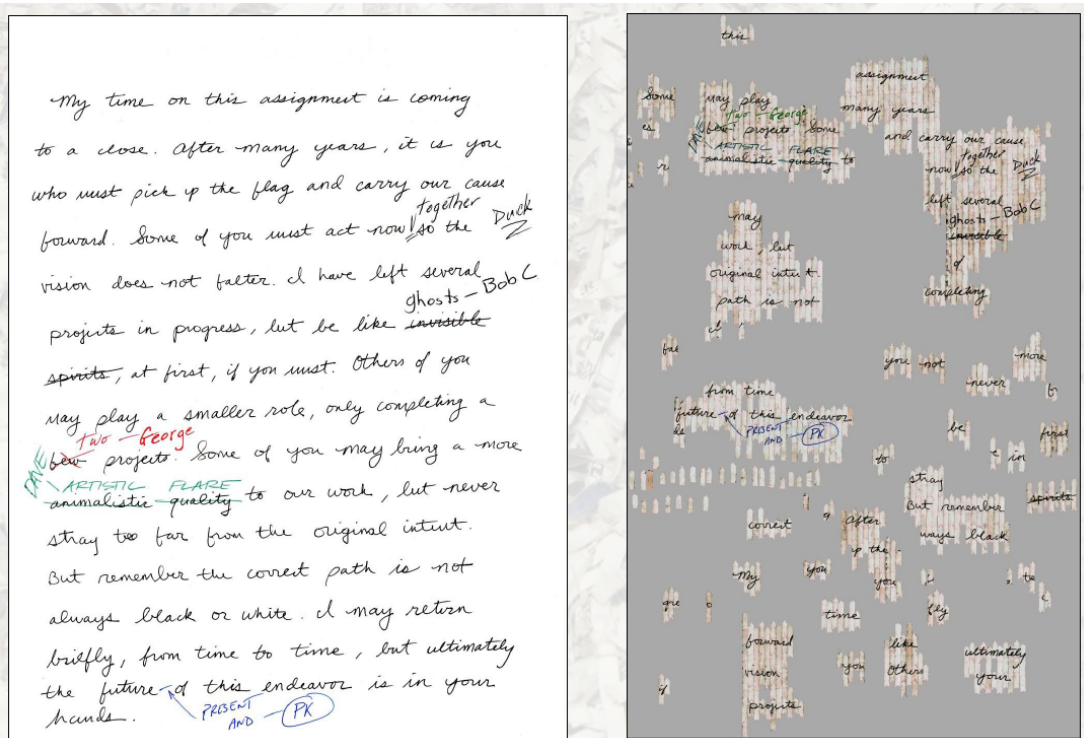 My time on this assignment is coming
to a close. After many years, it is you
who must pick up the flag and carry our cause
together Duck
forward. Some of you must act now so the
vision does not falter. I have left several
ghosts - Bob C
projects in progress, but be like invisible
spirits, at first, if you must. Others of you
may play a smaller role, only completing a
two - George
DAVE few projects. Some of you may bring a more
ARTISTIC FLARE
animalistic quality to our work, but never
stray too far from the original intent.
But remember the correct path is not
always black or white. I may return
briefly, from time to time, but ultimately
the future of this endeavor is in your
hands. PRESENT AND - PK
this
assignment
Some may play many years
two - George
es few projects. Some and carry our cause
DAVE ARTISTIC FLARE together Duck
animalistic quality to now so the
left several
may ghosts - Bob C
work, but invisible
original intent. of
path is not completing
you not more
never
from time
future of this endeavor be first
PRESENT AND - PK
to in
stray
But remember spirits
correct After ways black
up the
My you you
time
forward like ultimately
vision you Others your
projects